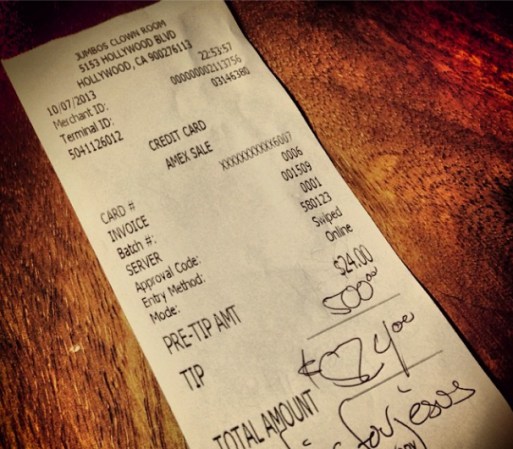 JUMBOS CLOWN ROOM
5153 HOLLYWOOD BLVD
HOLLYWOOD, CA 900276113
10/07/2013 22:53:57
Merchant ID: 000000002113756
Terminal ID: 03146380
5041126012
CREDIT CARD
AMEX SALE
CARD # XXXXXXXXXXX6007
INVOICE 0006
Batch #: 001509
SERVER 0001
Approval Code: 580123
Entry Method: Swiped
Mode: Online
PRE-TIP AMT $24.00
TIP 500 00
TOTAL AMOUNT 524 00
for jesus